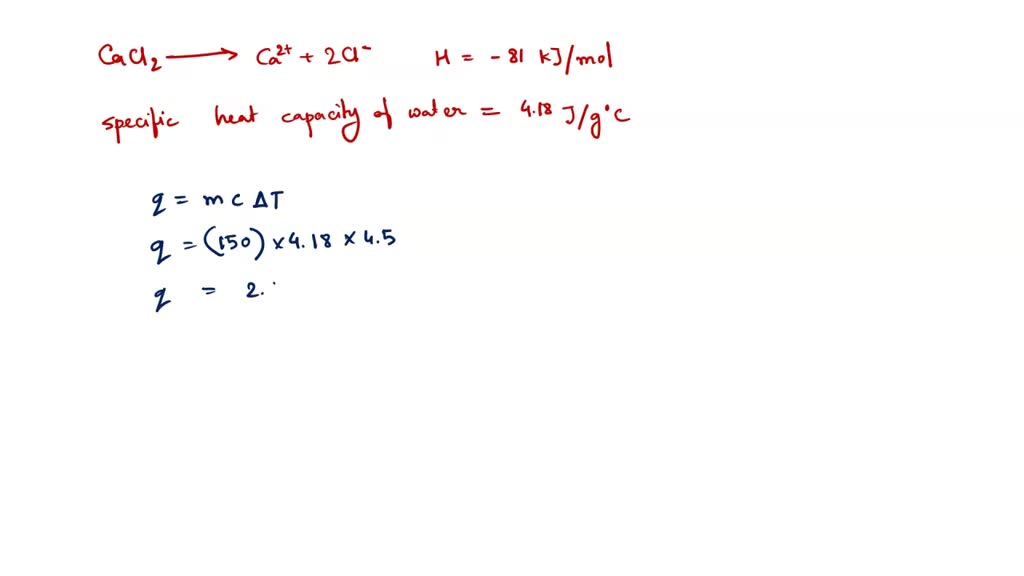 CaCl₂ ⟶ Ca²⁺ + 2Cl⁻ H = - 81 KJ/mol
specific heat capacity of water = 4.18 J/g°C
q = m c ΔT
q = (150) × 4.18 × 4.5
q = 2.